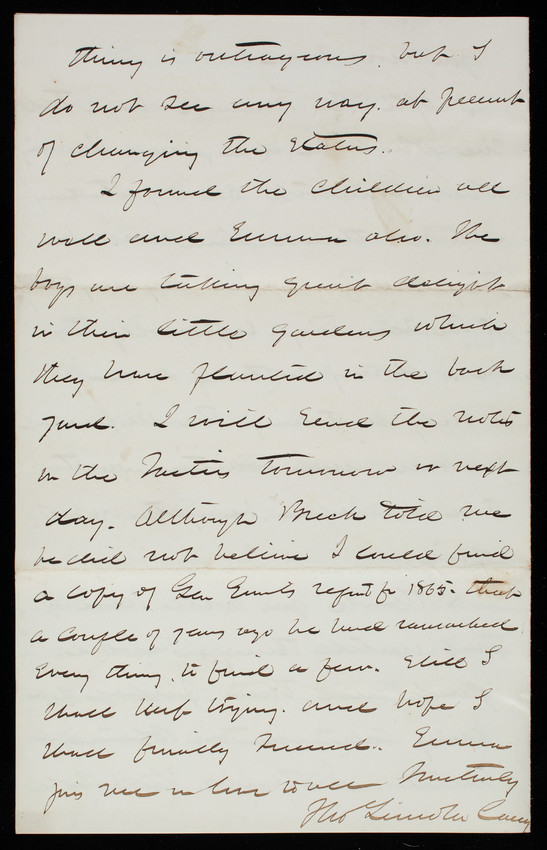 thing is outrageous, but I
do not see any way, at present
of changing the status.
I found the children all
well and Emma also. The
boys are taking great delight
in their little gardens which
they have planted in the back
yard. I will send the notes
on the tomorrow or next
day. Although Breck told me
he did not believe I could find
a copy of Gen Grant's report for 1865. that
a couple of years ago he had ransacked
every thing, to find a few. Still I
shall keep trying. and hope I
shall finally succeed. Emma
joins me in love to all Most truly
Thos Lincoln Casey